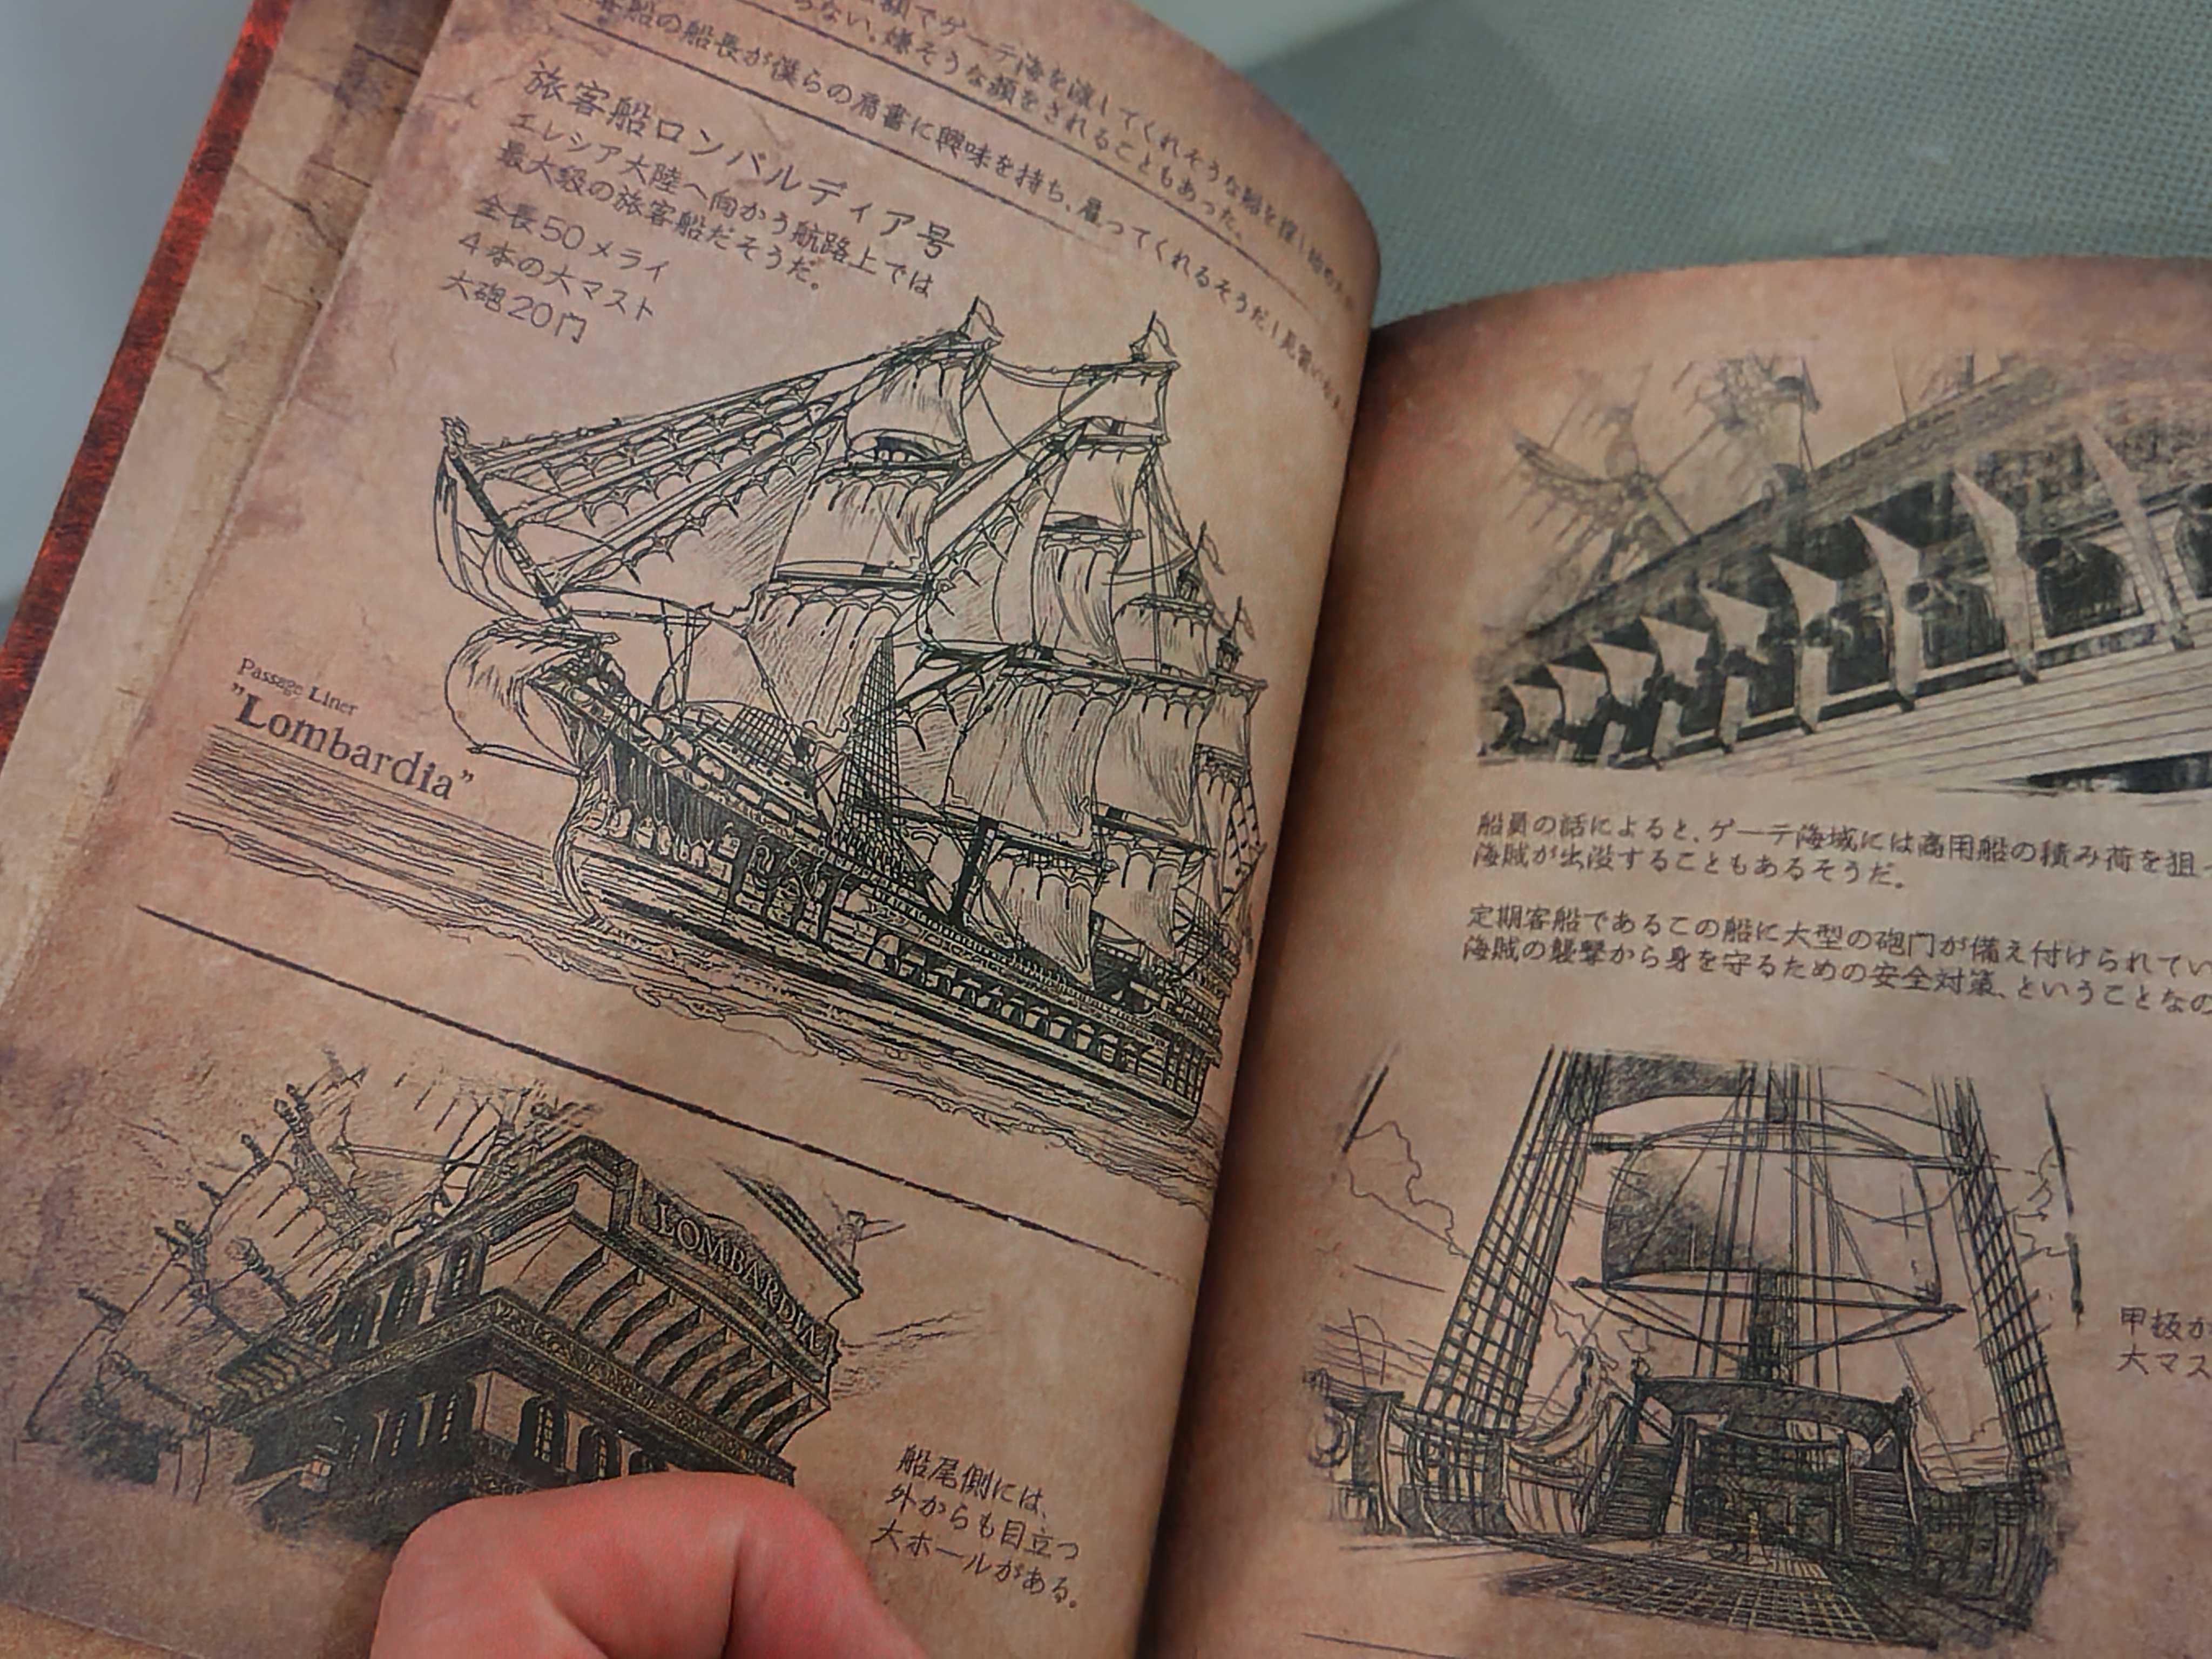 でゲーテ海を渡してくれそうな船を探し始めた
らない。嫌そうな顔をされることもあった。
客船の船長が僕らの肩書に興味を持ち、雇ってくれるそうだ!見習い
旅客船ロンバルディア号
エレシア大陸へ向かう航路上では
最大級の旅客船だそうだ。
全長50メライ
4本の大マスト
大砲20門
Passage Liner
"Lombardia"
LOMBARDIA
船尾側には、
外からも目立つ
大ホールがある。
船員の話によると、ゲーテ海域には商用船の積み荷を狙っ
海賊が出没することもあるそうだ。
定期客船であるこの船に大型の砲門が備え付けられてい
海賊の襲撃から身を守るための安全対策、ということなの
甲板か
大マス